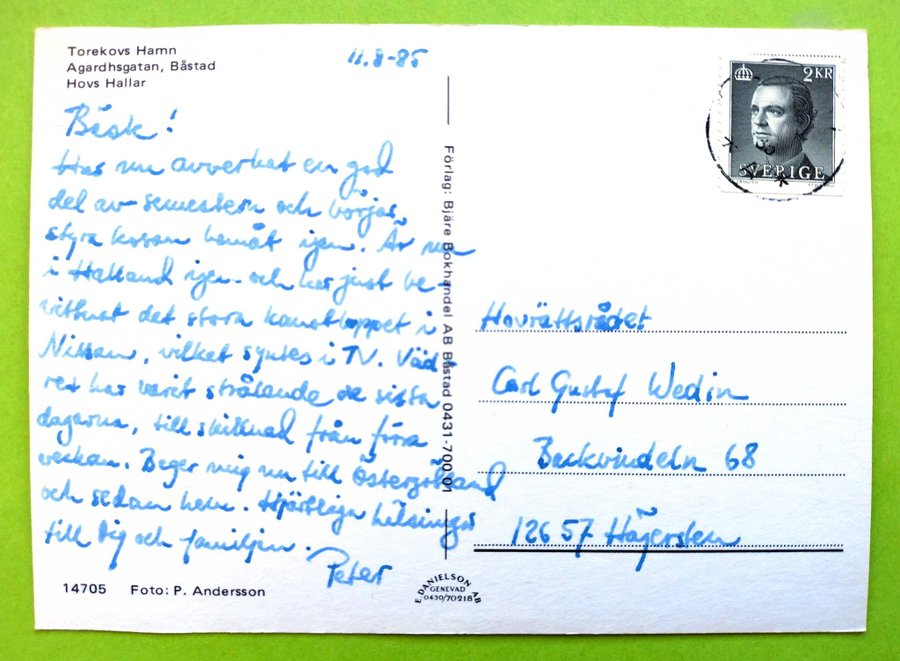 Torekovs Hamn
Agardhsgatan, Båstad
Hovs Hallar
11.8-85
Bäsk!
Has nu avverkat en god
del av semestern och börjas
styra kosan hemåt igen. Är nu
i Halland igen och har just be-
vittnat det stora kanotloppet i
Nissan, vilket syntes i TV. Väd-
ret har varit strålande de sista
dagarna, till skillnad från förra
veckan. Beger mig nu till Östergötland
och sedan hem. Hjärtliga hälsningar
till Dig och familjen.
Peter
14705 Foto: P. Andersson
Förlag: Bjäre Bokhandel AB Båstad 0431-700 01
E. DANIELSON AB
GENEVAD
0430/70218
2KR
SVERIGE
Hovrättsrådet
Carl Gustaf Wedin
Beckvindeln 68
126 57 Hägersten